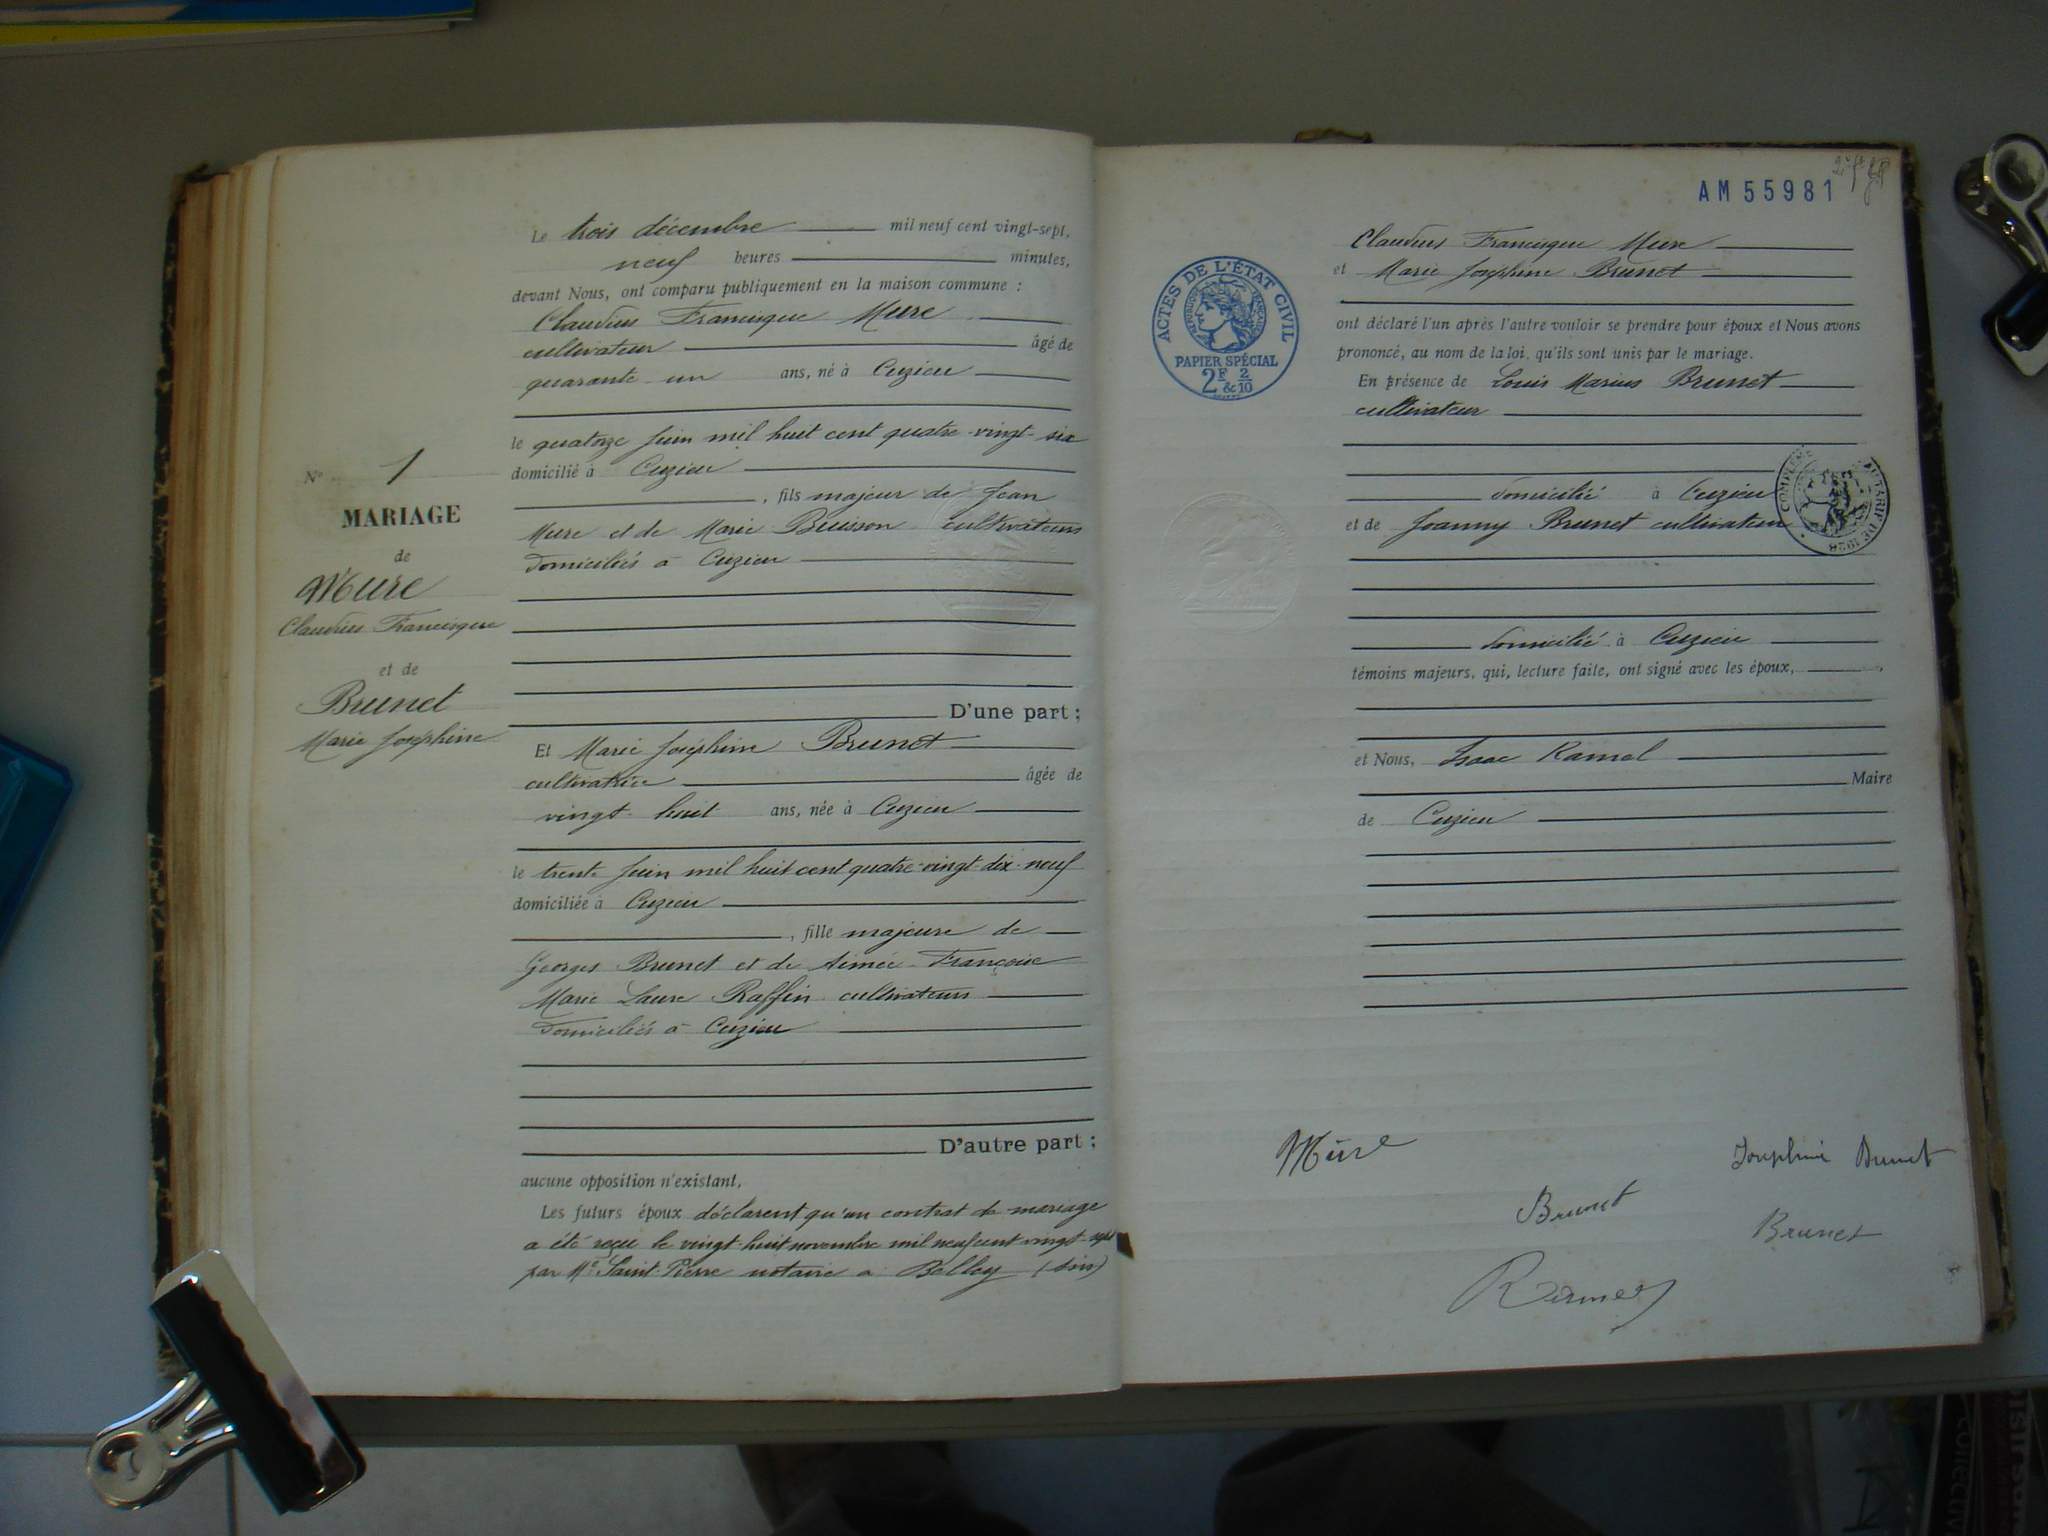 N° 1
MARIAGE
de
Mure
Claudius Francisque
et de
Brunet
Marie Joséphine
Le trois décembre mil neuf cent vingt-sept,
neuf heures minutes,
devant Nous, ont comparu publiquement en la maison commune :
Claudius Francisque Mure
cultivateur âgé de
quarante-un ans, né à Cuzieu
le quatorze juin mil huit cent quatre-vingt-six
domicilié à Cuzieu
, fils majeur de Jean
Mure et de Marie Buisson cultivateurs
domiciliés à Cuzieu
D'une part ;
Et Marie Joséphine Brunet
cultivatrice âgée de
vingt-huit ans, née à Cuzieu
le trente juin mil huit cent quatre-vingt-dix-neuf
domiciliée à Cuzieu
, fille majeure de
Georges Brunet et de Aimée-Françoise
Marie Laure Raffin cultivateurs
domiciliés à Cuzieu
D'autre part ;
aucune opposition n'existant,
Les futurs époux déclarent qu'un contrat de mariage
a été reçu le vingt-huit novembre mil neuf cent vingt-sept
par Me Saint-Pierre notaire à Belley (Ain)
AM 55981
ACTES DE L'ÉTAT CIVIL
RÉPUBLIQUE FRANÇAISE
PAPIER SPÉCIAL
2F & 2/10
Claudius Francisque Mure
et Marie Joséphine Brunet
ont déclaré l'un après l'autre vouloir se prendre pour époux et Nous avons
prononcé, au nom de la loi, qu'ils sont unis par le mariage.
En présence de Louis Marius Brunet
cultivateur
domicilié à Cuzieu
et de Joanny Brunet cultivateur
TARIF DE 1926
domicilié à Cuzieu
témoins majeurs, qui, lecture faite, ont signé avec les époux,
et Nous, Isaac Ramel
Maire
de Cuzieu
Mure
Joséphine Brunet
Brunet
Brunet